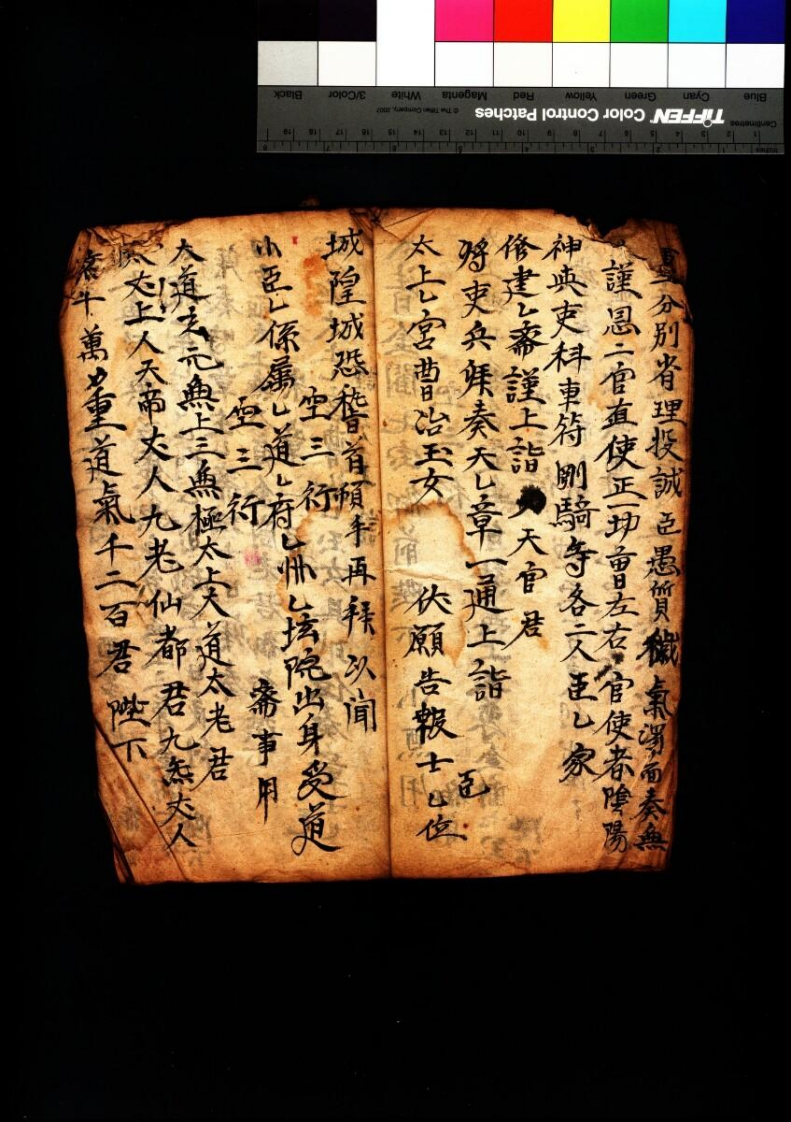 分別省理投誠臣愚質穢氣濁面奏無
謹恩二官直使正一功曹左右官使者陰陽
神吏科車符剛騎等各二人臣乚家
修建乚齋謹上詣 天官君
將吏兵奏天乚章一通上詣 臣
太上乚宮曹冶玉女 伏願告報士乚位
城隍城恐稽首頓手再拜以聞
空三行
小臣乚係屬乚道乚府乚州乚坛院出身受道
空三行 齋事用
大道之元無上三無極太上大道太老君
丈上人天帝丈人九老仙都君九炁丈人
千萬重道氣千二百君陛下
TIFFEN Color Control Patches
© The Tiffen Company, 2007
Centimetres
Inches
Blue Cyan Green Yellow Red Magenta White 3/Color Black